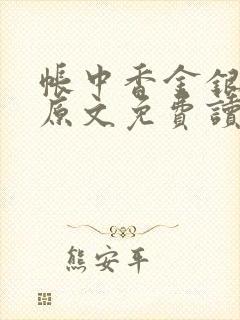 帳中香金銀
原文免費讀
熊安平